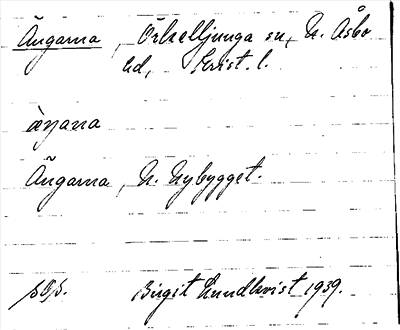 Ängarna, Örkelljunga sn, N. Åsbo
hd, Krist. l.
æŋana
Ängarna, N. Nybygget.
s. 8, 8.
Birgit Lundkvist 1939.